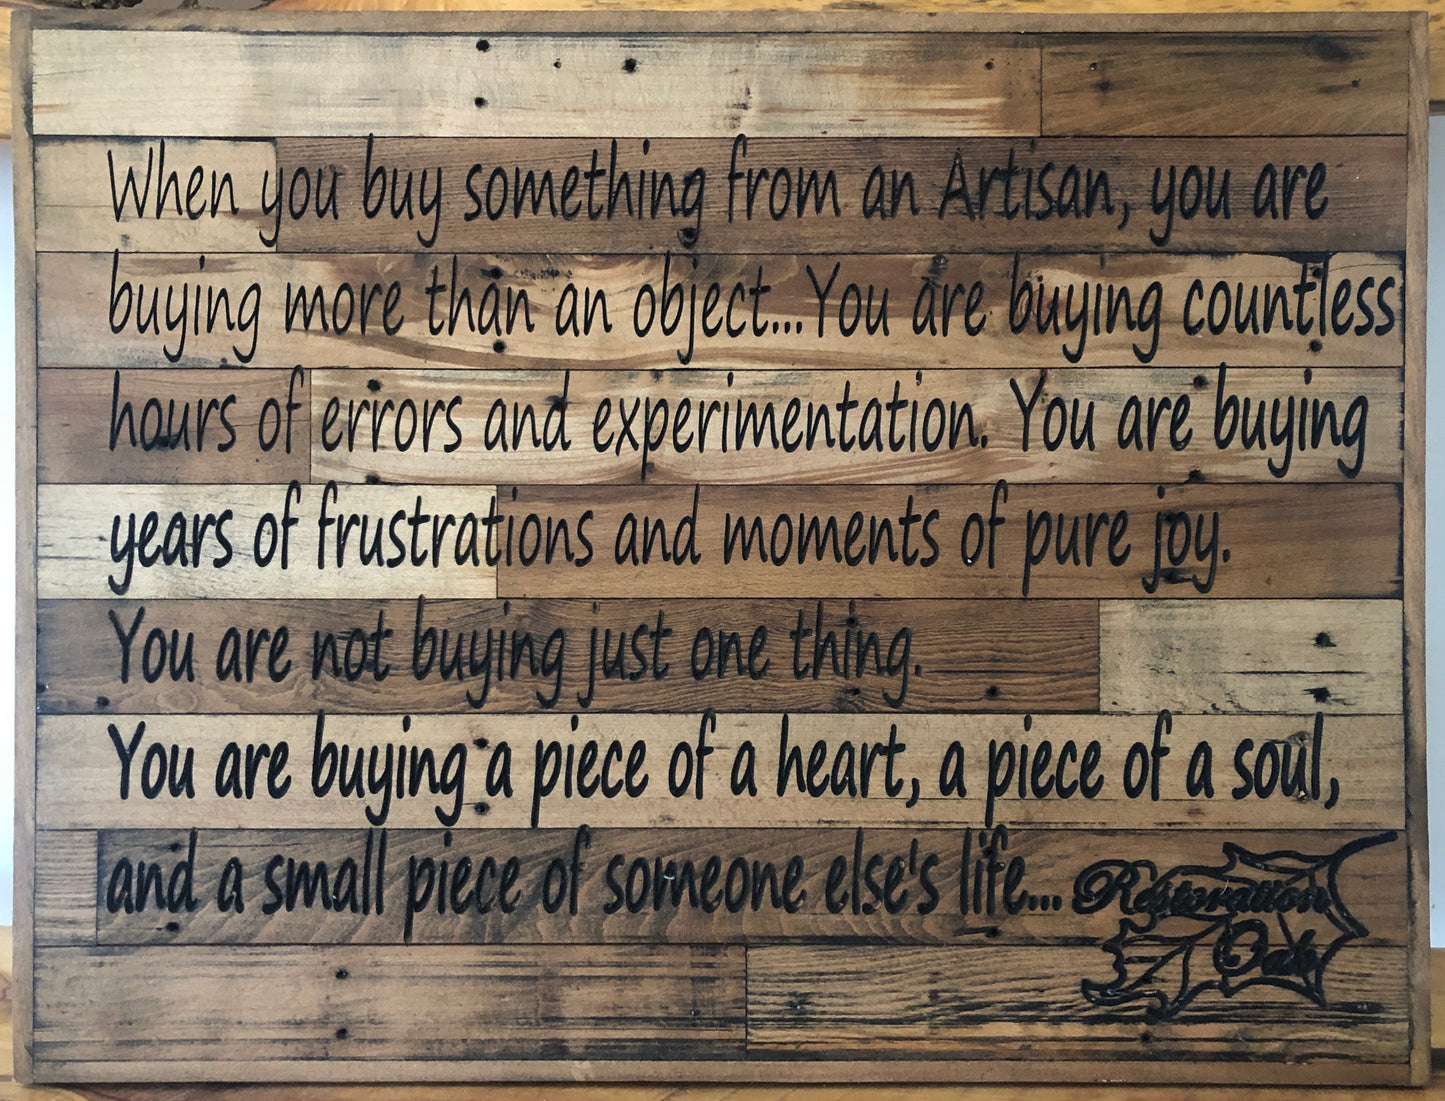 When you buy something from an Artisan, you are
buying more than an object...You are buying countless
hours of errors and experimentation. You are buying
years of frustrations and moments of pure joy.
You are not buying just one thing.
You are buying a piece of a heart, a piece of a soul,
and a small piece of someone else's life...
Restoration
Oak